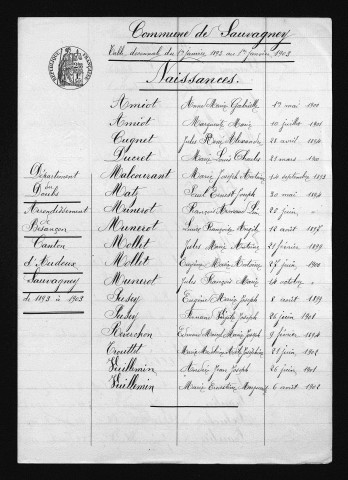 Commune de Sauvagney
Table décennale du 1er janvier 1893 au 1er janvier 1903
Naissances.
Amiot Anne Marie Gabrielle mai 1900
Amiot Marguerite Marie 10 juillet 1901
Cugnet Jules René Alexandre 21 avril 1894
Marie Charles 21 mars
Département Malcourant Marie Joseph Antoine 14 septembre 1893
du
Doubs Maty Paul Ernest Joseph 30 mai 1894
Arrondissement Munerot François 22 juin
de
Besançon Munerot Louise Françoise 12 août 1897
Canton Mollet Jules Marie Antoine 21 février 1899
d'Audeux Mollet Marie 27 juin 1901
Sauvagney Munerot Jules François Marie 14 octobre
de 1893 à 1903 Pusey Eugène Marie Joseph 8 août 1899
Pusey Joseph 26 juin 1901
Reverchon Edmond Marcel Marie Joseph 9 février 1894
Trouttet Marie Joséphine 21 juin 1902
Vuillemin Jean Joseph 26 juin 1901
Vuillemin Marie Ernestine Marguerite 6 août 1902